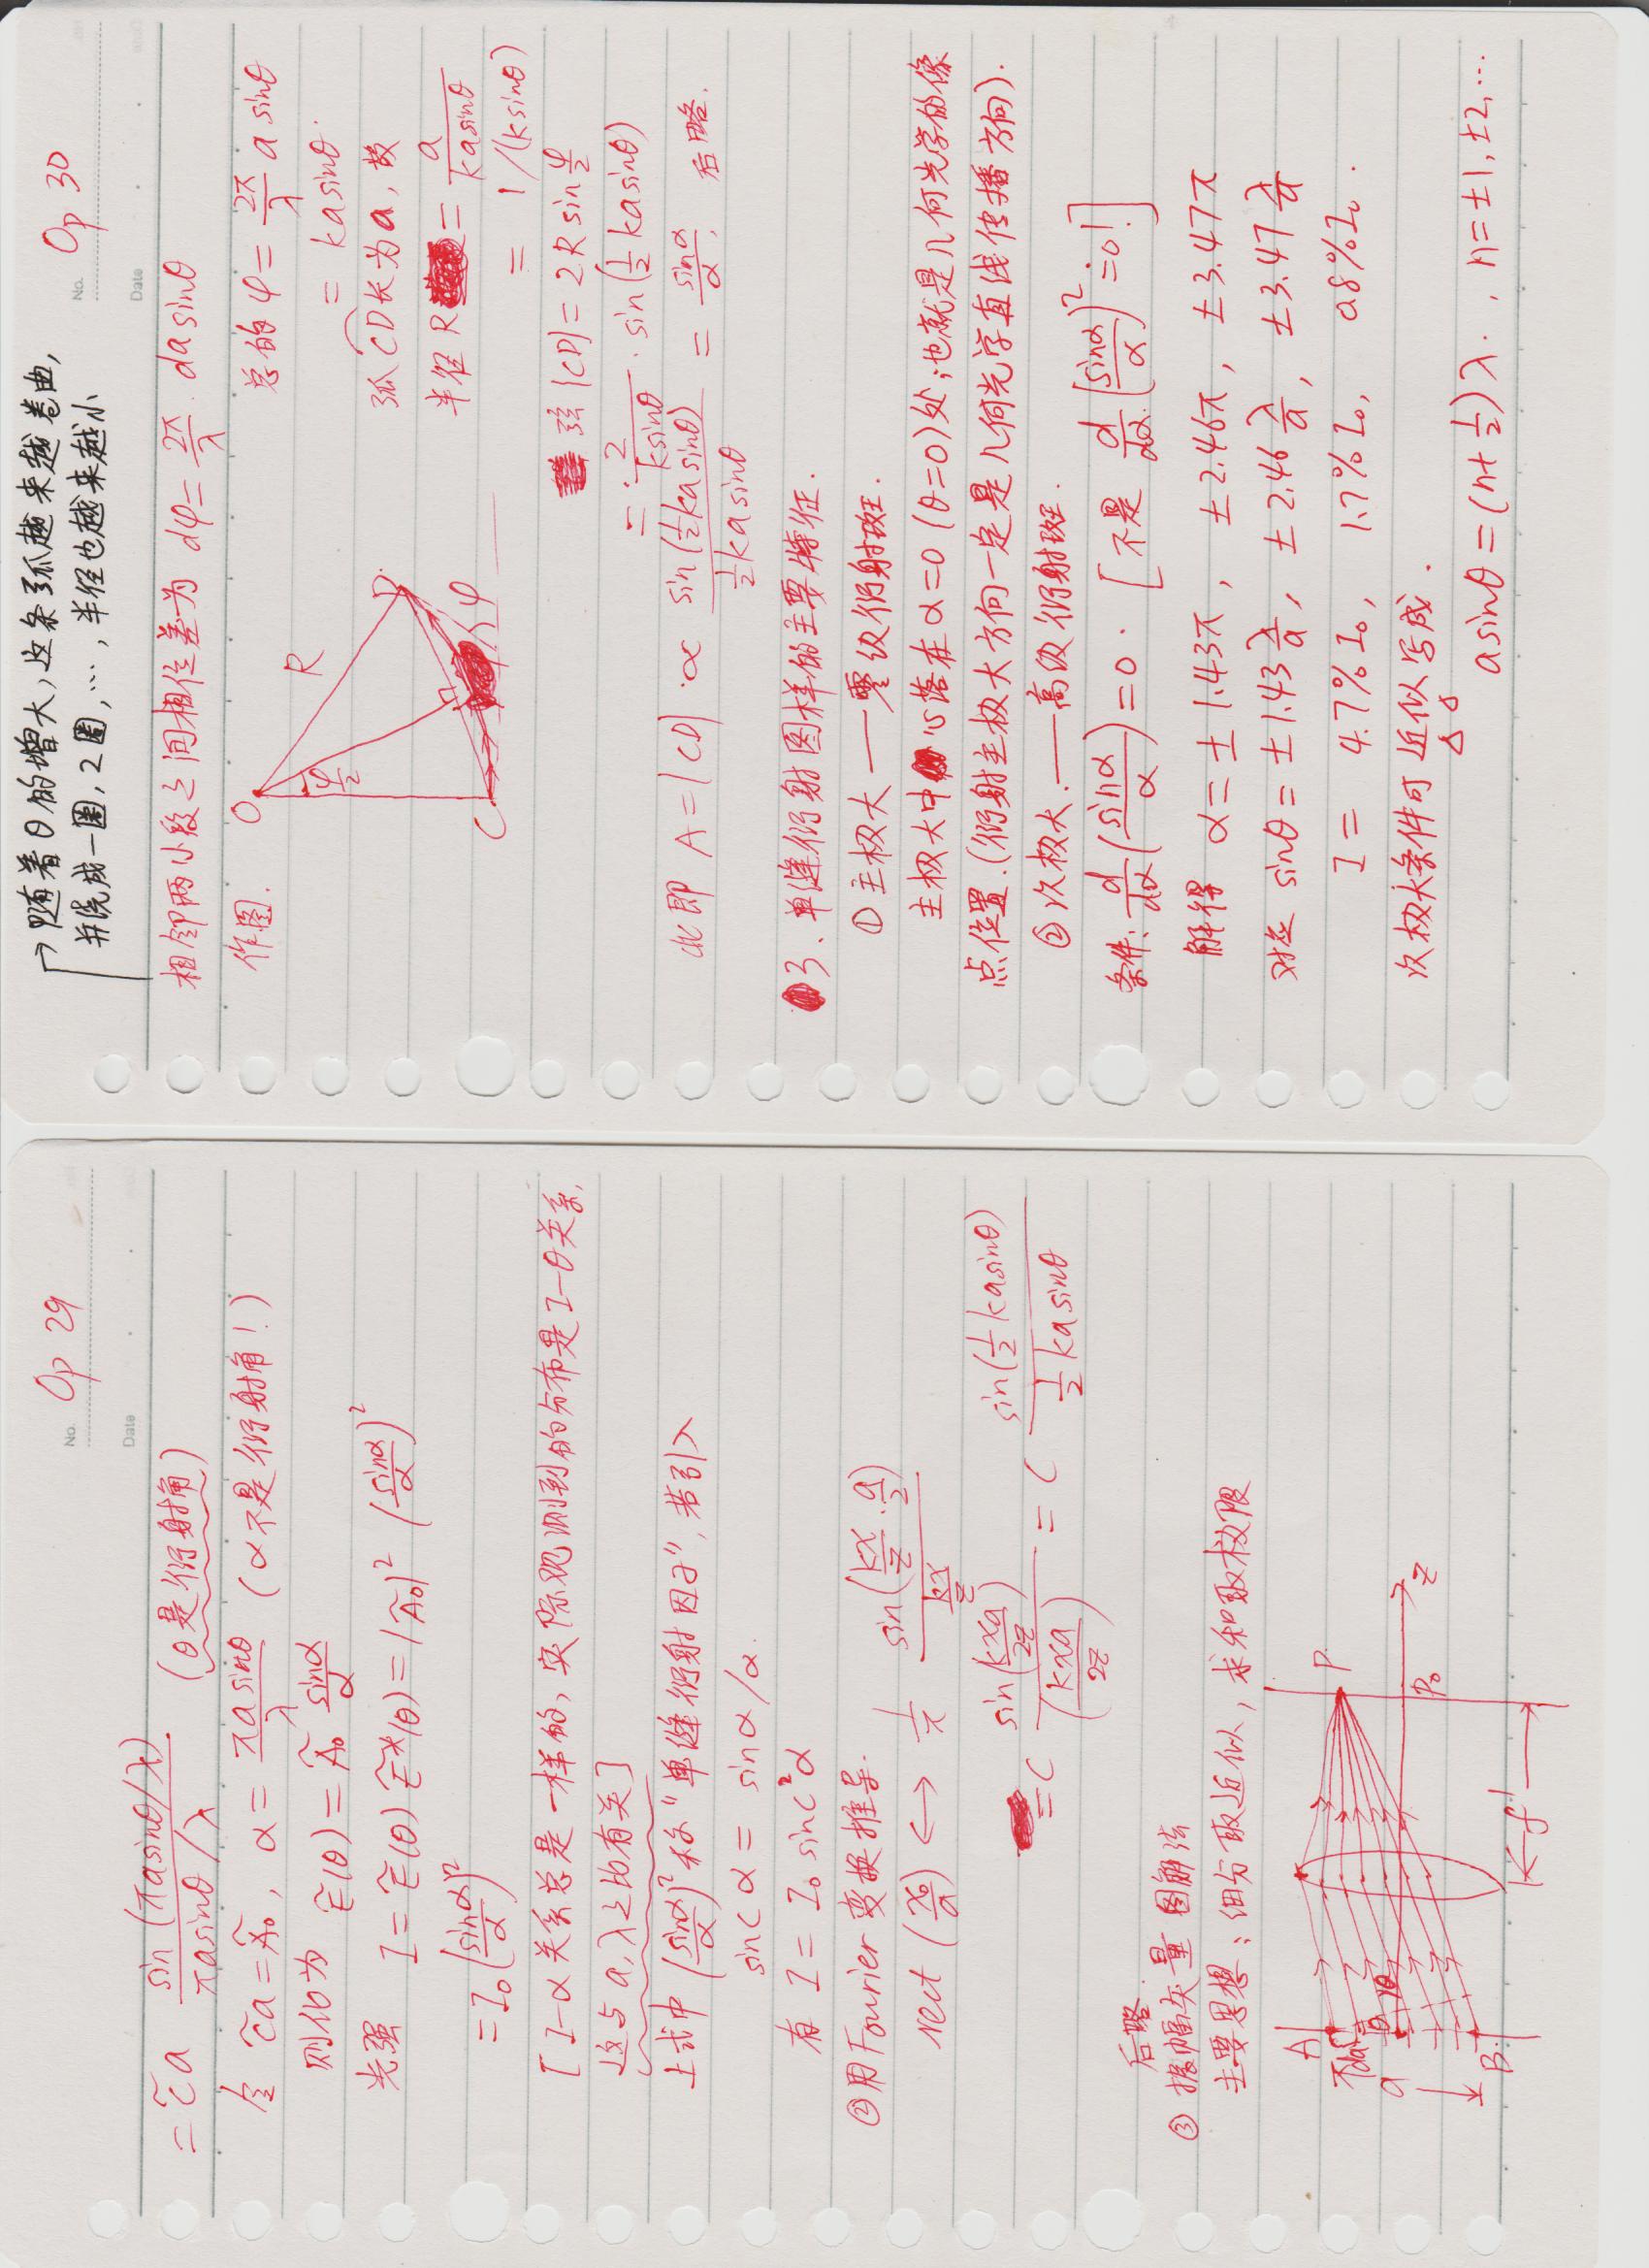 No. Op 29
Date
= c̃a sin(πasinθ/λ) / (πasinθ/λ) (θ是衍射角)
令 c̃a = Ã₀, α = πasinθ/λ (α不是衍射角!)
则化为 Ẽ(θ) = Ã₀ sinα/α
光强 I = Ẽ(θ) Ẽ*(θ) = |Ã₀|² (sinα/α)²
= I₀ (sinα/α)²
[I-α关系总是一样的, 实际观测到的分布是I-θ关系,
这与a,λ之比有关]
上式中 (sinα/α)² 称"单缝衍射因子", 若引入
sinc α = sinα/α.
有 I = I₀ sinc²α
②用Fourier变换推导.
rect(x₀/a) ↔ 1/π sin(kx/z · a/2) / (kx/z)
= C sin(kxa/2z) / (kxa/2z) = C sin(½kasinθ) / ½kasinθ
后略.
③振幅矢量图解法
主要思想: 细分取近似, 求和取极限
A
da
a
θ
θ
B
P
P₀
z
f'
→随着θ的增大,这条弧越来越卷曲,
并绕成一圈, 2圈, …, 半径也越来越小
No. Op 30
Date
相邻两小段之间相位差为 dφ = 2π/λ · da sinθ
作图.
O
φ/2
R
D
C
φ
总的φ = 2π/λ a sinθ
= kasinθ.
弧CD长为a, 故
半径R = a/(kasinθ)
= 1/(ksinθ)
弦|CD| = 2R sin φ/2
= 2/(ksinθ) · sin(½kasinθ)
此即 A = |CD| ∝ sin(½kasinθ) / ½kasinθ = sinα/α, 后略.
3. 单缝衍射图样的主要特征.
①主极大——零级衍射斑.
主极大中心落在α=0 (θ=0)处,也就是几何光学的像
点位置.(衍射主极大方向一定是几何光学直线传播方向).
②次极大.——高级衍射斑.
条件: d/dα (sinα/α) = 0. [不是 d/dα (sinα/α)² = 0!]
解得 α = ±1.43π, ±2.46π, ±3.47π
对应 sinθ = ±1.43 λ/a, ±2.46 λ/a, ±3.47 λ/a
I = 4.7%I₀, 1.7%I₀, 0.8%I₀.
次极大条件可近似写成.
asinθ = (n+½)λ., n=±1,±2,…